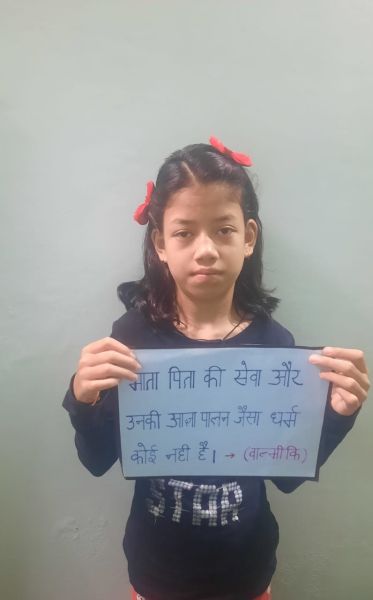 माता पिता की सेवा और
उनकी आज्ञा पालन जैसा धर्म
कोई नही है। → (वाल्मीकि)
STAR